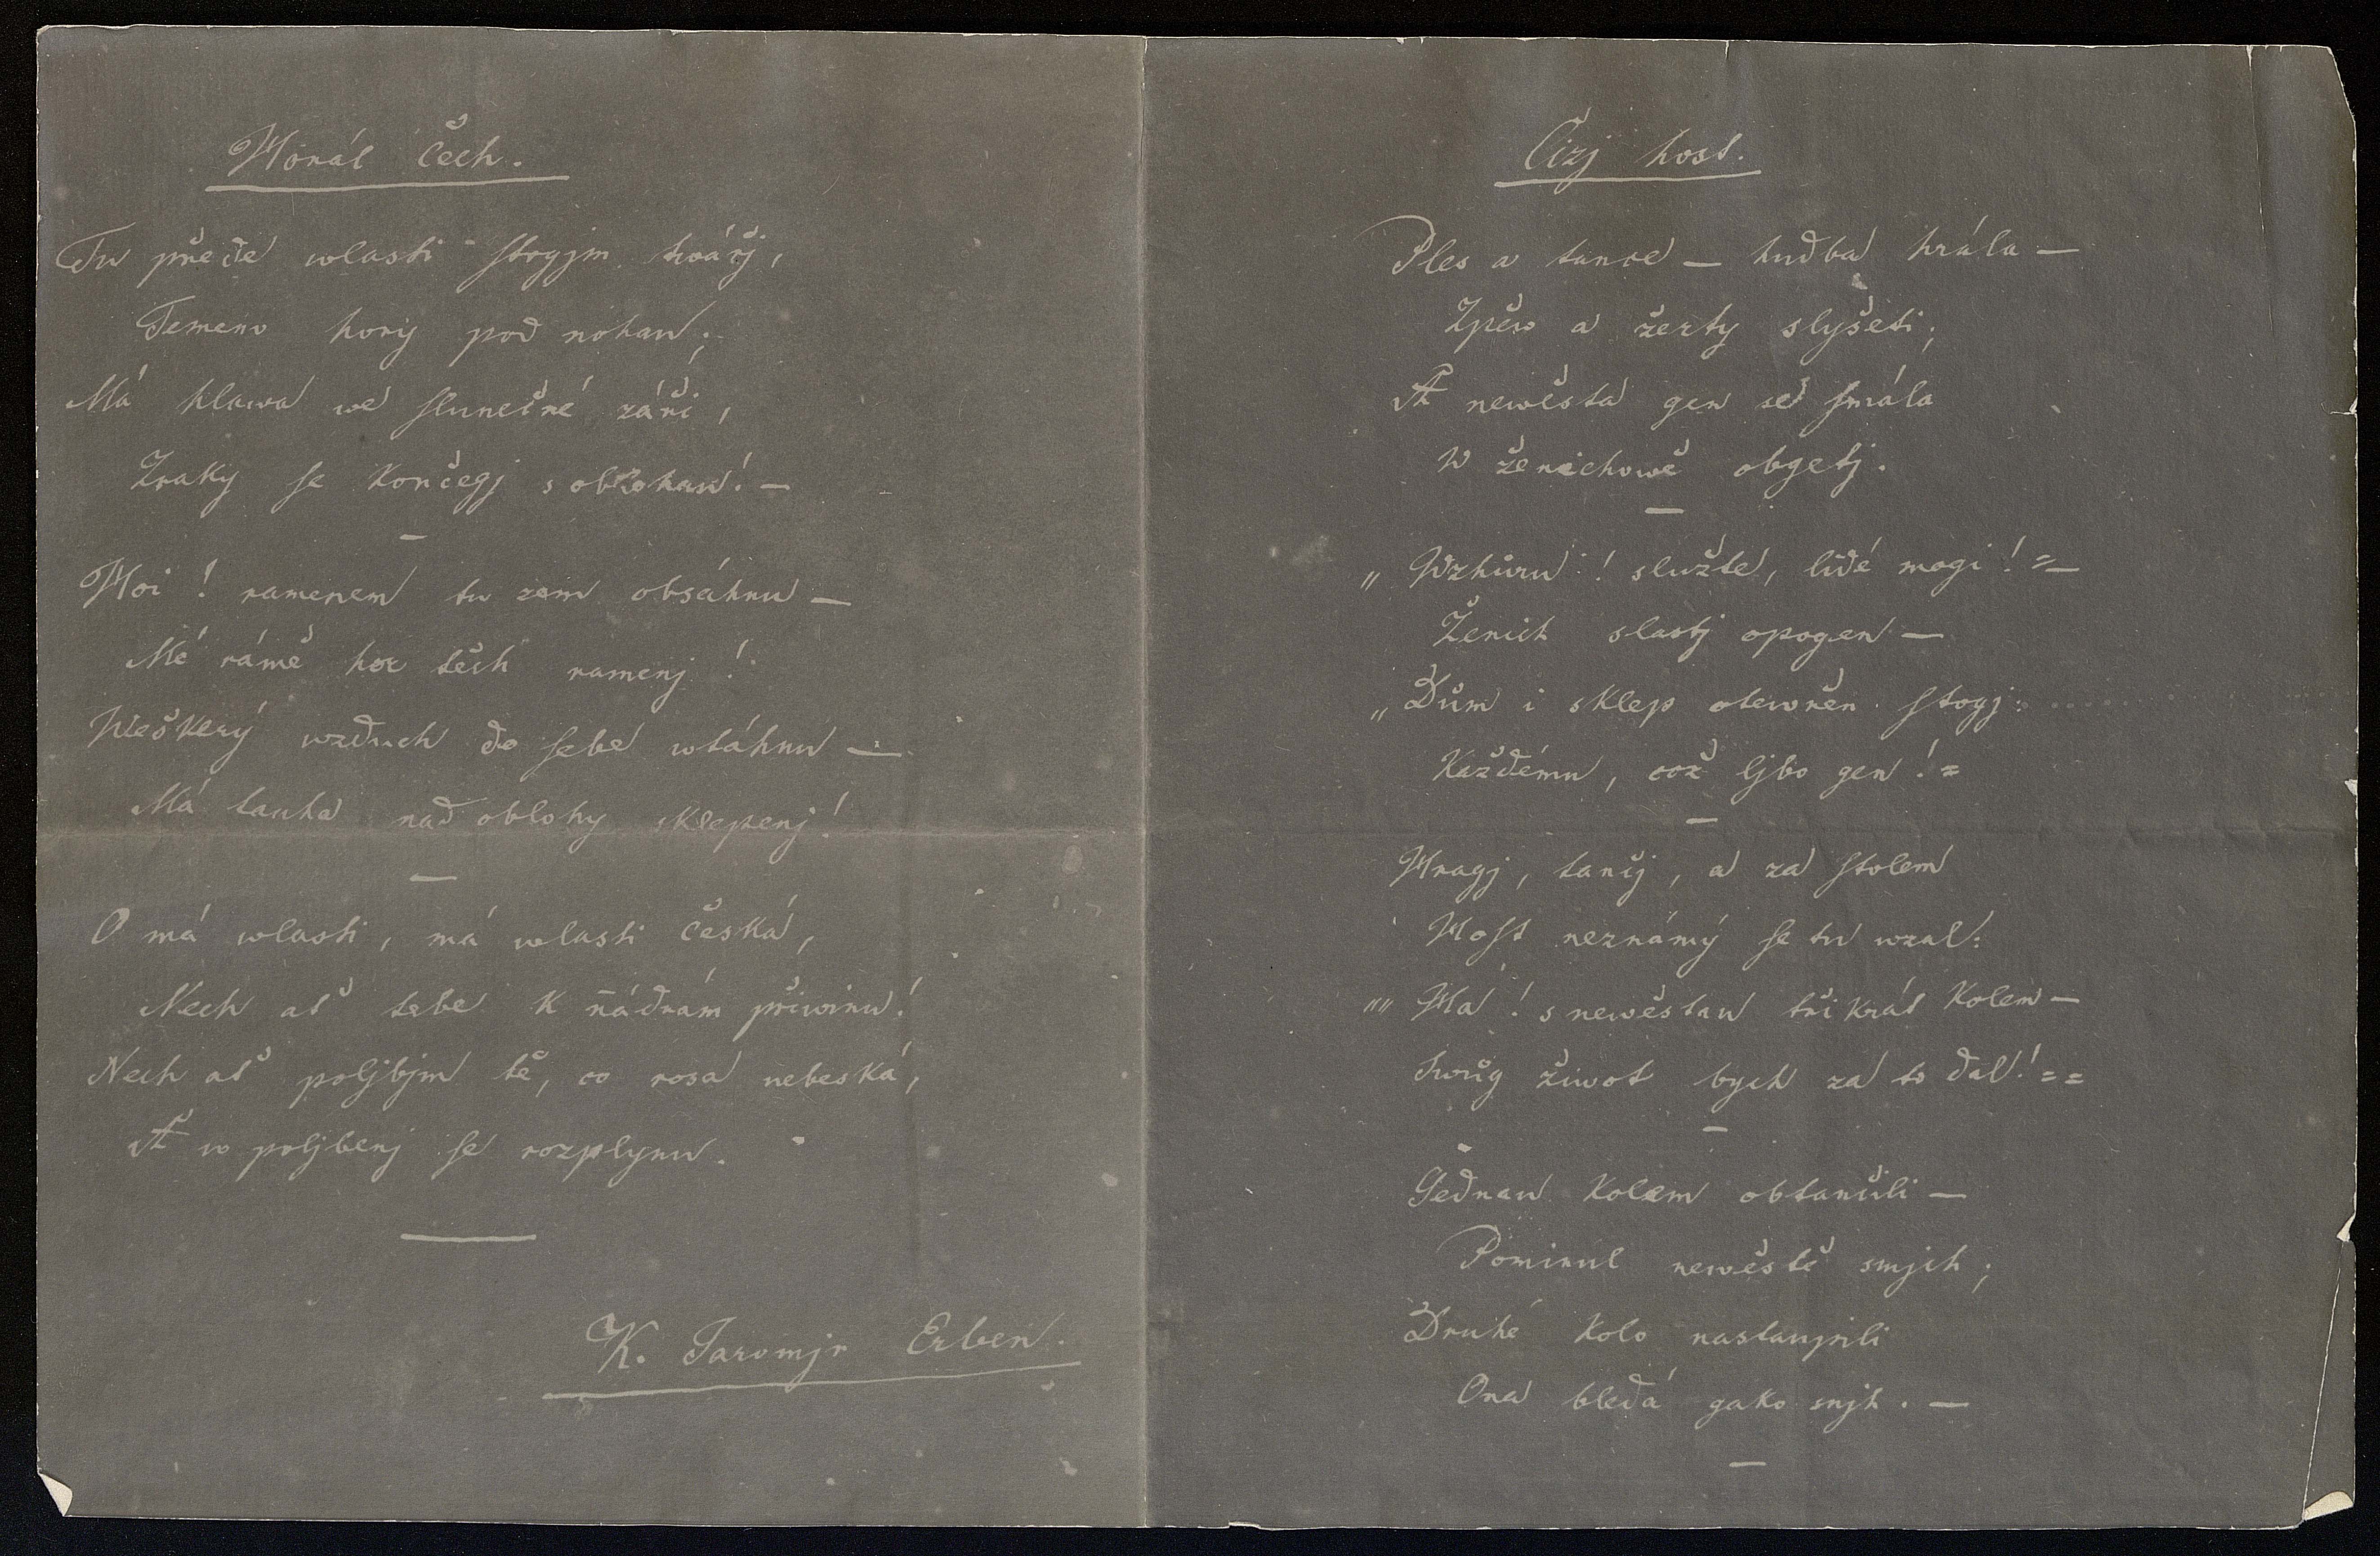 Horál Čech.
Tu přede wlasti stogjm twářj,
Temeno hory pod nohau;
Má hlawa we slunečné záři,
Zraky se končegj s oblohau! —
—
Hoi! ramenem tu zem obsáhnu —
Mé rámě hor těch ramenj!
Weškerý wzduch do sebe wtáhnu —
Má tauha nad oblohy sklepenj!
—
O má wlasti, má wlasti česká,
Nech ať tebe k ňádrám přiwinu!
Nech ať poljbjm tě, co rosa nebeská,
A w poljbenj se rozplynu.
K. Jaromjr Erben.
Cizj host.
Ples a tance — hudba hrála —
Zpěw a žerty slyšeti;
A newěsta gen se smála
W ženichowě obgetj.
—
„Wzhůru! služte, lidé mogi! =—
Ženich slastj opogen —
„Dům i sklep otewřen stogj: . . . . . .
Každému, což ljbo gen! =
—
Hragj, tančj, a za stolem
Host neznámý se tu wzal:
„„Ha! s newěstau třikrát kolem —
Swůg žiwot bych za to dal! = =
—
Gednau kolem obtančili —
Pominul newěstě smjch;
Druhé kolo nastaupili
Ona bledá gako snjh. —
—